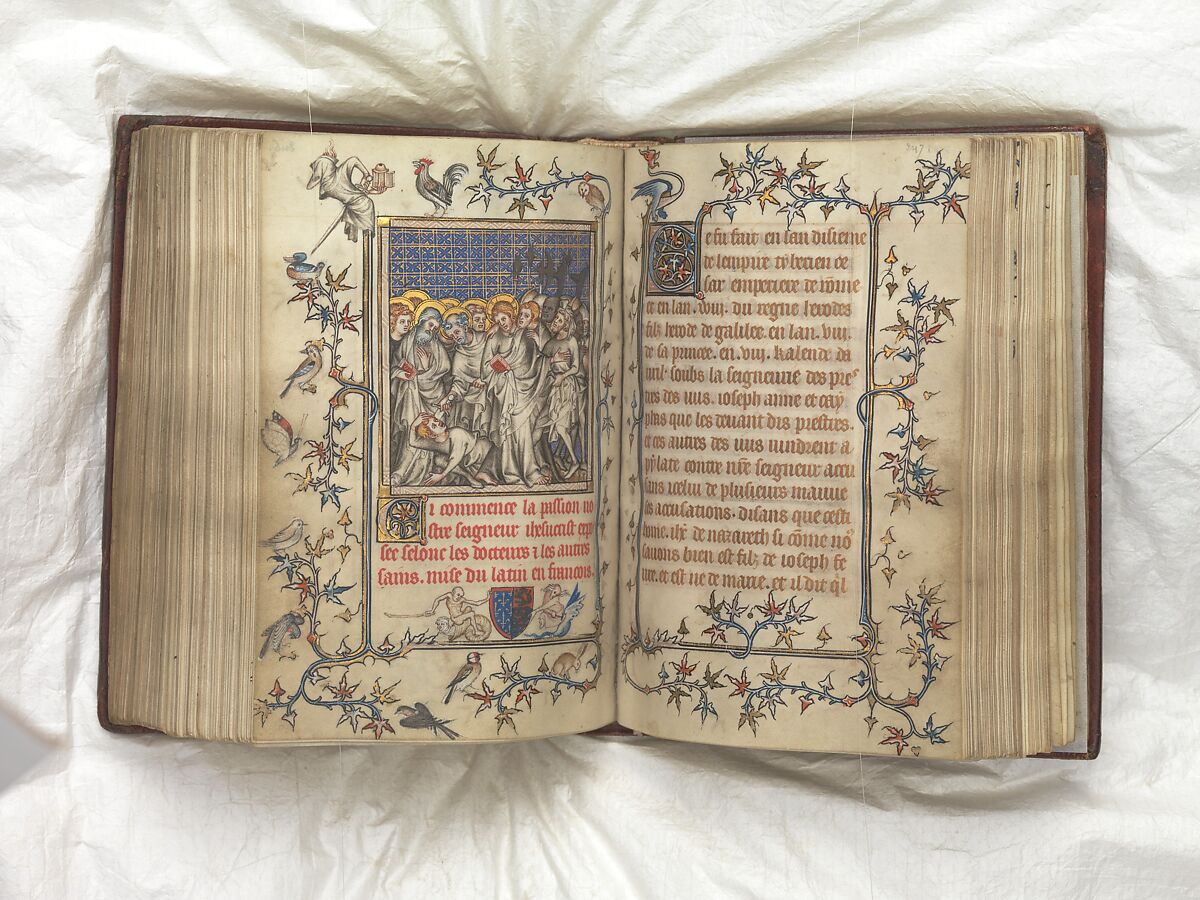 Ci commence la passion no
stre seigneur ihesucrist expo
see selonc les docteurs ⁊ les autres
sains. mise du latin en francois.
Ce fu fait en lan disieme
de lempire tyberien ce
sar empereire de rome
et en lan .xviij. du regne herodes
filz herode de galilee. en lan. viij.
de sa princee. en .viij. kalende da
uril. soubs la seigneurie des pres
tres des iuis. ioseph anne et cay
phas que les deuant dis prestres.
et ces autres des iuis uindrent a
pylate contre nre seigneur accu
sans icelui de plusieurs mauue
ses accusations. disans que cesti
home. ihc de nazareth si come no9
sauons bien est filz de ioseph fe
ure. et est ne de marie. et il dit ql